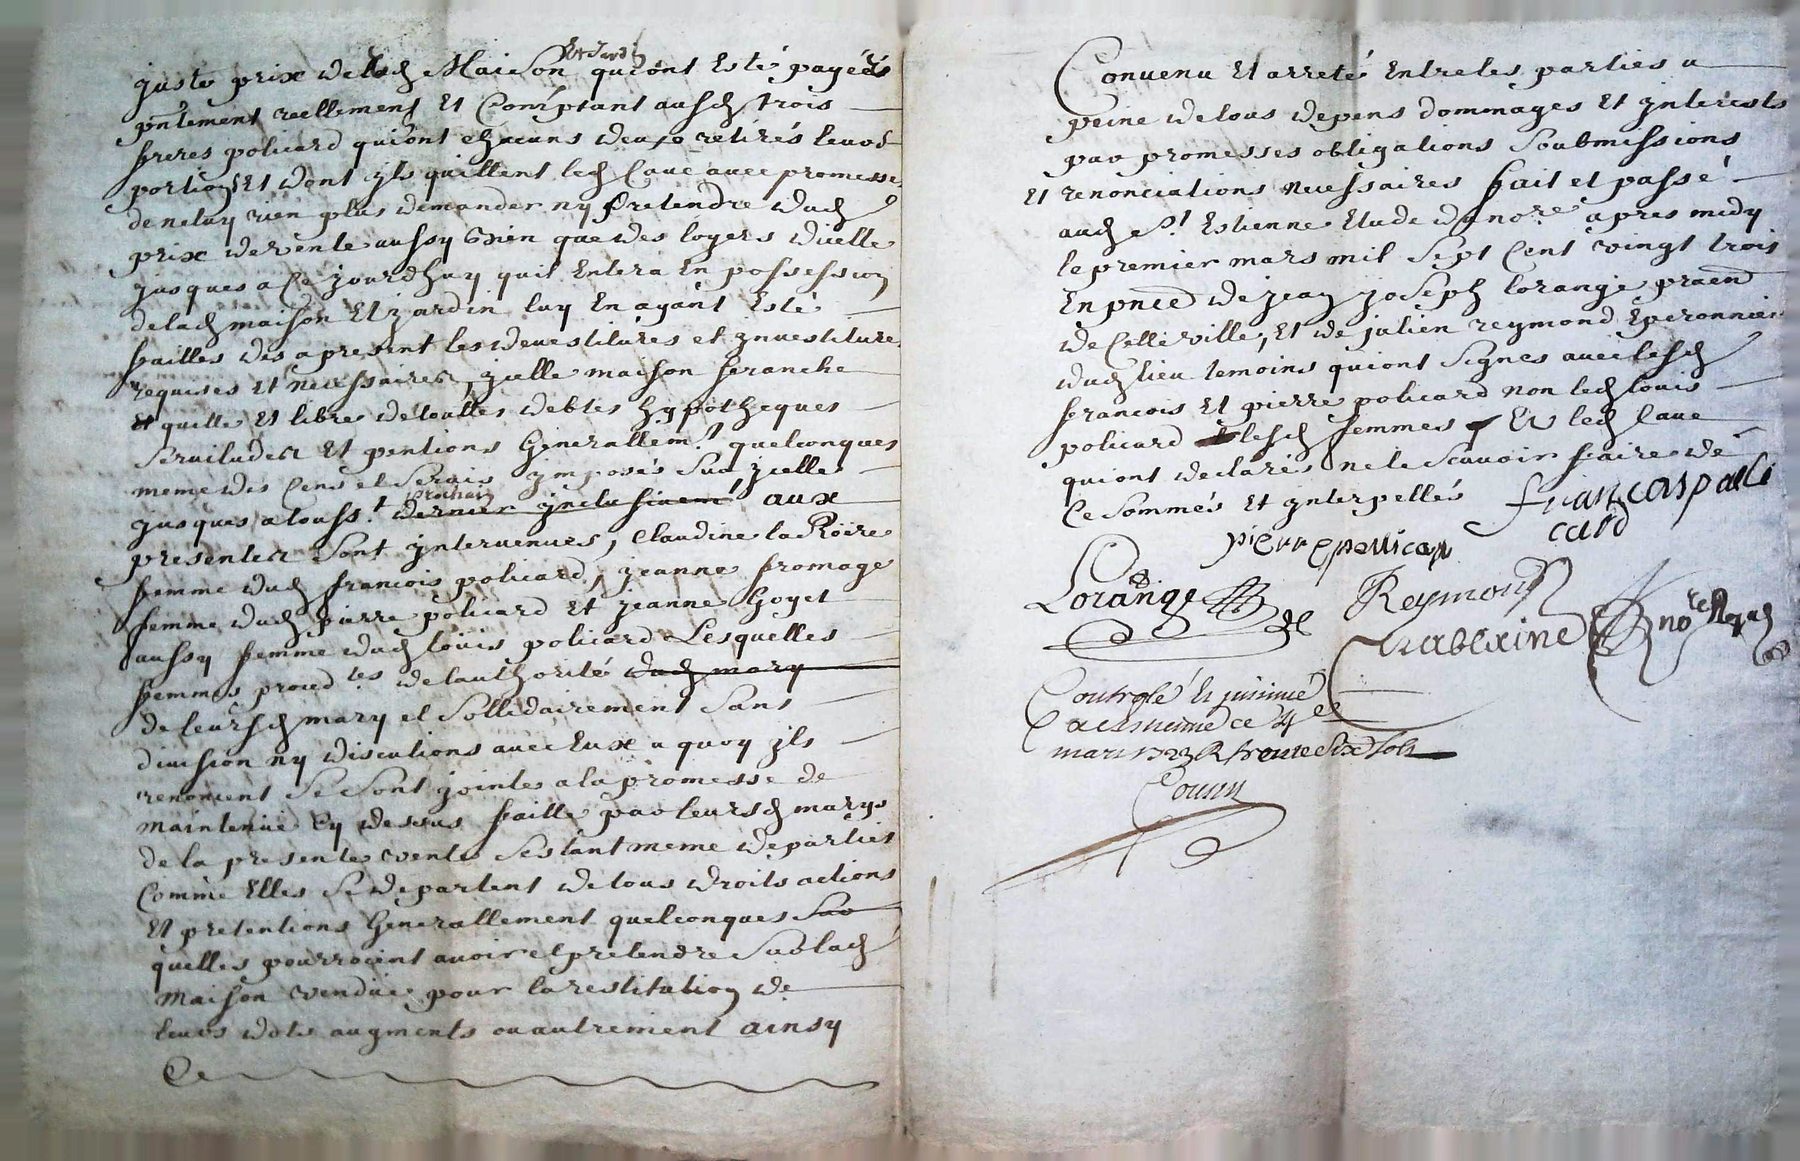 Et Jardin
juste prix de lad maison qui ont Esté payées
pntement reellement Et Comptant ausd trois
freres policard qui ont chacuns d'eux retirés leurs
portions Et dont ils quittent led Cave avec promesse
de ne luy rien plus demander ny pretendre dud
prix de vente aussy bien que des loyers d'icelle
jusques a Ce jourdhuy quil Entera En possession
de lad maison Et jardin luy En ayant Esté
faittes dès apresent les devestitures et jnvestitures
requises et necessaires, jcelle maison franche
Et quitte Et libre de touttes debtes hypotheques
Servitudes Et pentions Generallemt quelconques
meme des Cens et Servis jmposés Sur jcelle
prochain
jusques a touss.t dernier jnclusivemt aux
presentes Sont jntervenues, Claudine la Roire
femme dud francois policard, jeanne fromage
femme dud pierre policard et jeanne Goyet
aussy femme dud louis policard Lesquelles
femmes proced.tes de lauthorité dud mary
de leursd mary et Sollidairement Sans
division ny discutions avec Eux a quoy jls
renoncent Se Sont jointes a la promesse de
maintenue Cy dessus faitte par leursd marys
de la presente vente Sestant meme departies
Comme Elles Se departent de tous droits actions
Et pretentions Generallement quelconques Sur
quelles pourroient avoir et pretendre Sur lad
maison vendüe pour la restitution de
leurs dots augments ou autrement ainsy
De
Convenu Et arreté Entre les parties a
peine de tous depens dommages Et jnterests
par promesses obligations Soubmissions
Et renonciations necessaires fait et passé
aud St Estienne Etude du nore apres midy
le premier mars mil Sept Cent vingt trois
En pnce de jean joseph lorange praen
de Cette ville, Et de julien reymond Eperonnier
dud lieu temoins qui ont Signés avec lesd
francois Et pierre policard non led louis
policard lesd femmes Et led Cave
qui ont declarés ne le Scavoir faire de
Ce Sommés Et jnterpellés francoas pali
card
pierre pollicar
Lorange Reymond
nore Royal
Controlé Et jnsinué
a St Etienne ce 4e
mars 1723 R trente Six Sols